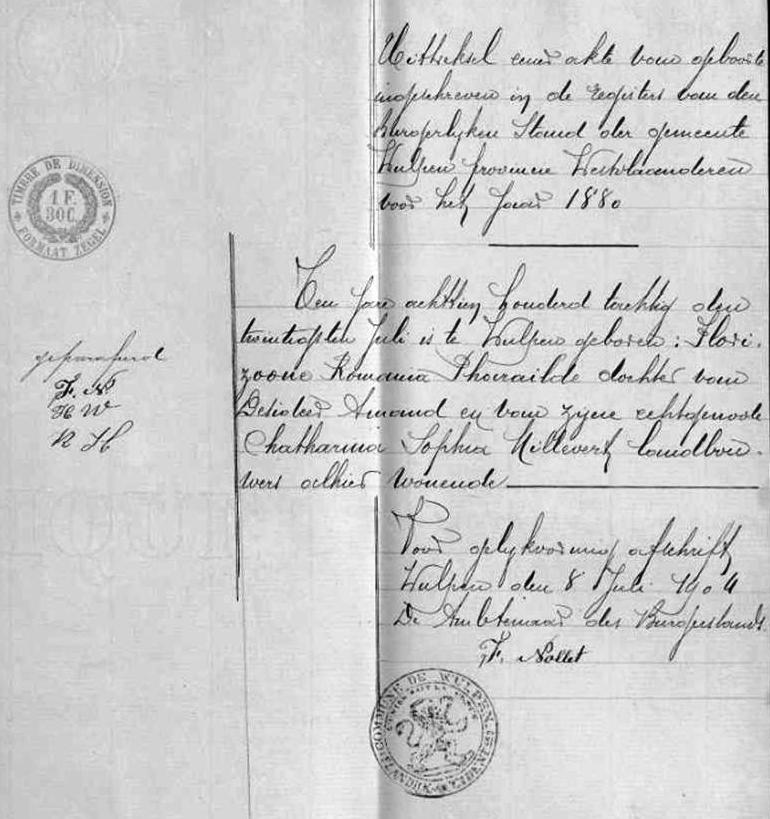 Uittreksel eener akte van geboorte
ingeschreven in de registers van den
Burgerlyken Stand der gemeente
Wulpen provincie Westvlaanderen
voor het Jaar 1880
TIMBRE DE DIMENSION
1 F.
30C.
FORMAAT ZEGEL
Ten Jare achttien honderd tachtig den
Juli is te Wulpen geboren: Flori-
Romania Pharailde dochter van
Desideer Amand en van zyne echtgenoote
Chatharina Sophia landbou-
wers alhier wonende
geparafeerd
F. N
H W
R H
Voor gelykvormig afschrift
Wulpen den 8 Juli 1904
De Ambtenaar des Burgerstands
F. Nollet
COMMUNE DE WULPEN